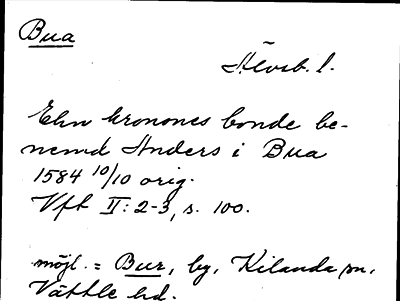 Bua
Älvsb. l.
Ehn kronones bonde be-
nemd Anders i Bua
1584 10/10 orig.
Vft II: 2-3, s. 100.
möjl. = Bur, by, Kilanda sn,
Vättle hd.